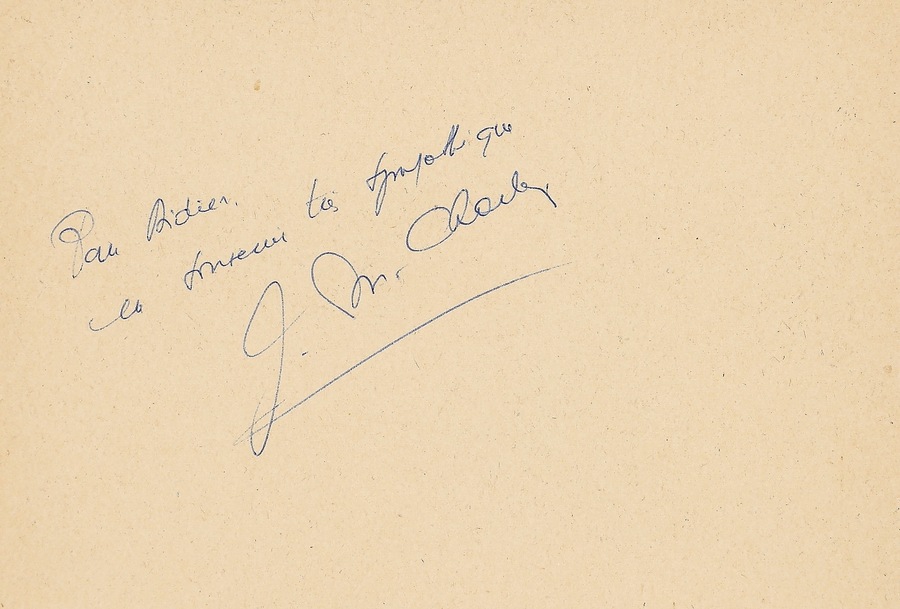 Pour Didier.
en souvenir très sympathique
J. M. Charlier